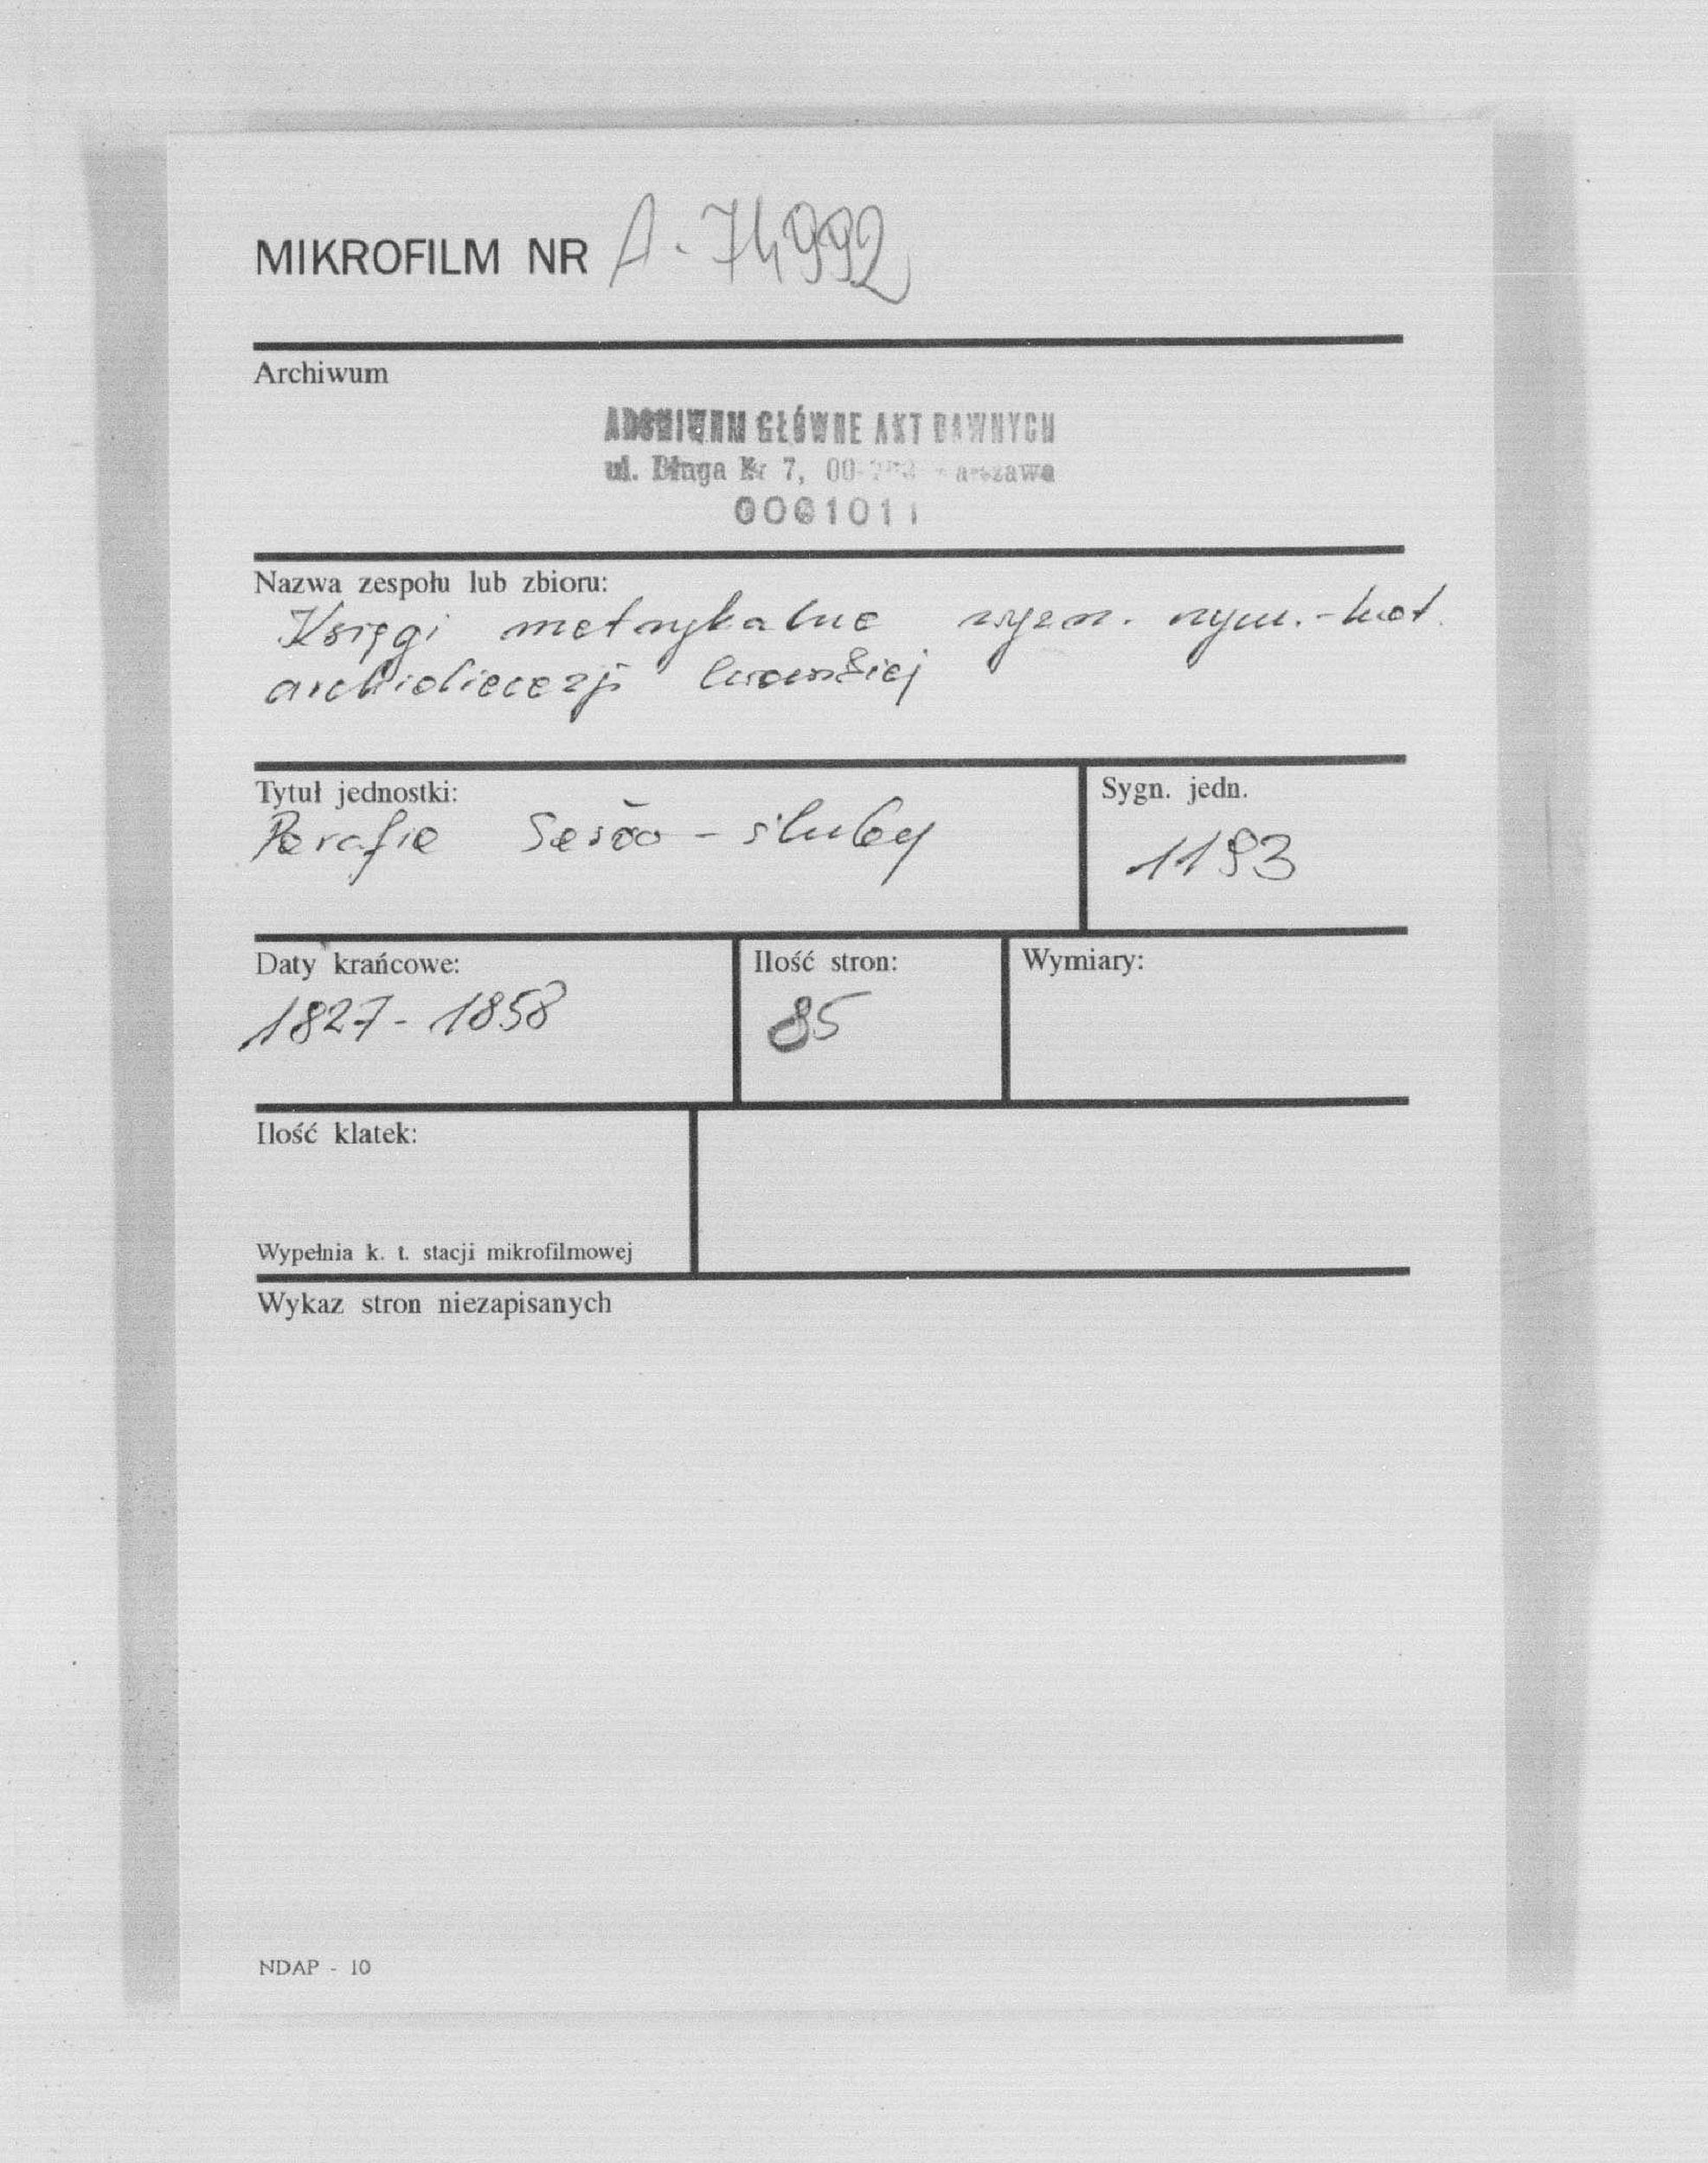 MIKROFILM NR A-74992
Archiwum
ARCHIWUM GŁÓWNE AKT DAWNYCH
ul. Długa Nr 7, 00- Warszawa
0001011
Nazwa zespołu lub zbioru:
Księgi metrykalne wyzn. rzym.-kat.
archidiecezji lwowskiej
Tytuł jednostki:
Parafia - śluby
Sygn. jedn.
1193
Daty krańcowe:
1827-1858
Ilość stron:
85
Wymiary:
Ilość klatek:
Wypełnia k. t. stacji mikrofilmowej
Wykaz stron niezapisanych
NDAP - 10